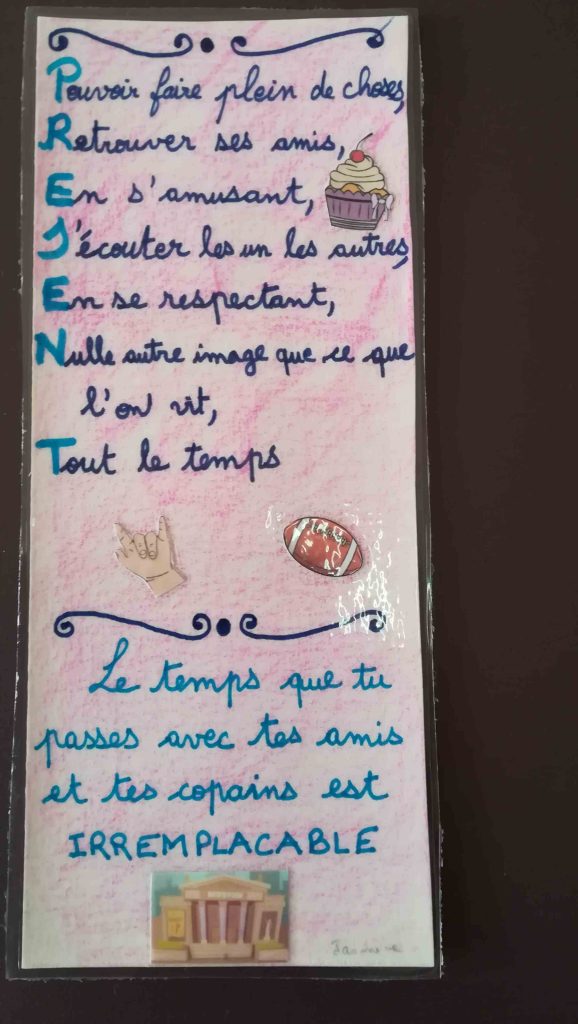 Pouvoir faire plein de choses,
Retrouver ses amis,
En s'amusant,
S'écouter les un les autres,
En se respectant,
Nulle autre image que ce que
l'on vit,
Tout le temps
Le temps que tu
passes avec tes amis
et tes copains est
IRREMPLACABLE